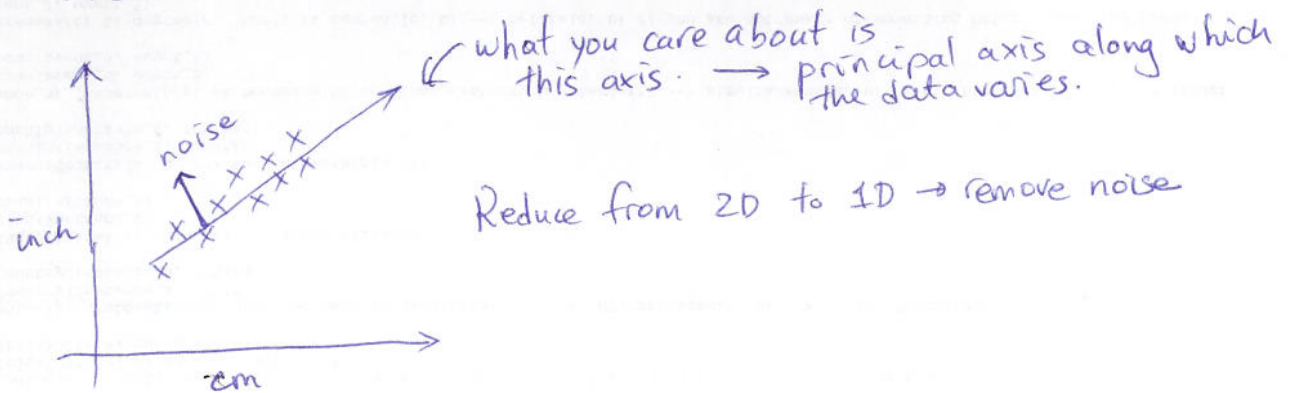 what you care about is
this axis. → principal axis along which
the data varies.
noise
Reduce from 2D to 1D → remove noise
inch
cm